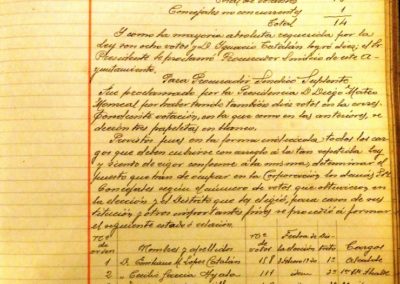 Concejales no concurrentes
Total 14
Y como la mayoria absoluta requerida por la
Ley son ocho votos y D. Ignacio Catalán logró doce, el Sr.
Presidente le proclamó Procurador Sindico de este A-
yuntamiento.
Para Procurador Sindico Suplente
fue proclamado por la Presidencia D. Diego Mateu
Monreal por haber tenido tambien diez votos en la corres-
pondiente votación, en la que como en las anteriores, re
papeletas en blanco.
Provistos pues en la forma indicada todos los car-
gos que deben cubrirse con arreglo á la tan repetida ley
y siendo de rigor conforme á la misma determinar el
puesto que han de ocupar en la Corporación los demás Sres
Concejales según el número de votos que obtuvieron en
la elección y el Distrito que les eligió, para casos de sus-
titución y otros importantes fines se procedió á formar
el siguiente estado ó relación.
Nº de orden Nombres y apellidos Nº de votos Fecha de la elección Dis-trito Cargos
1 D. Emiliano M. Lopez Catalán 158 1º Alcalde
2 " Cecilio García Ayala 111 idem 2º 1er Tte Alcalde